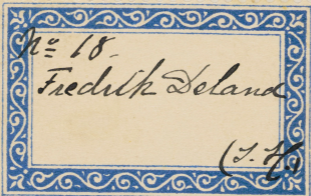 No 18.
Fredrik Deland